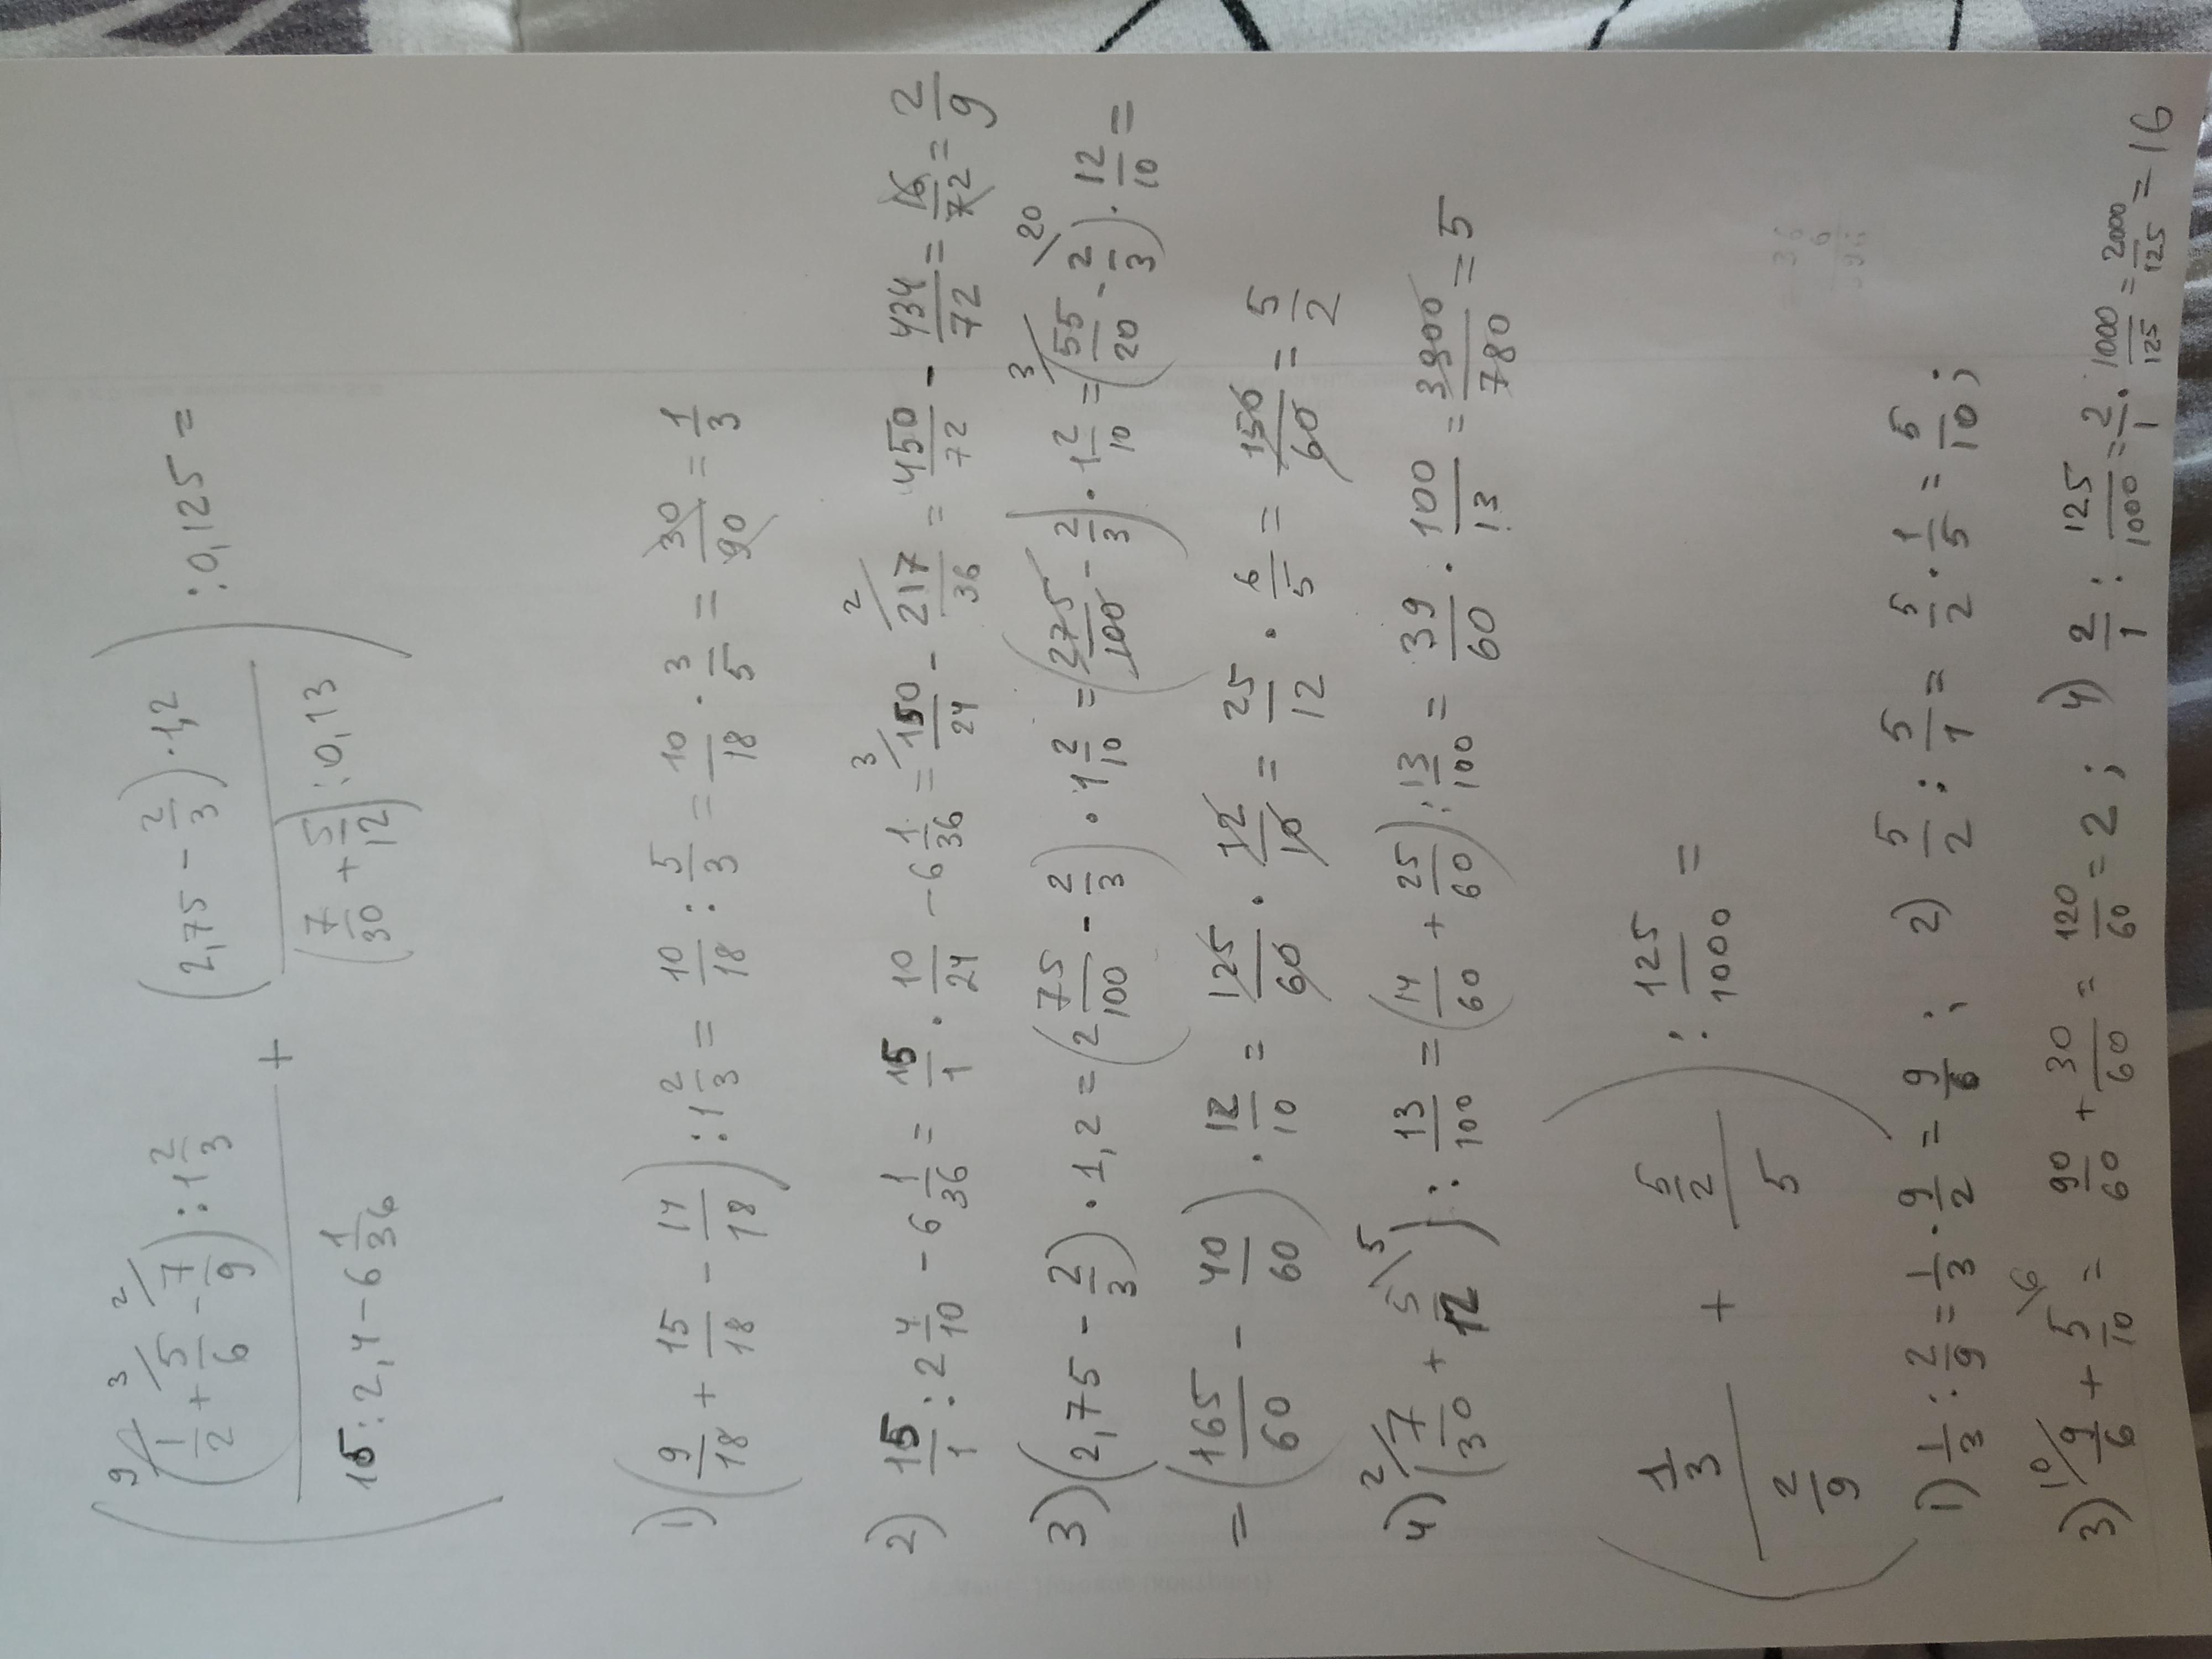 ( ((1/2 + 5/6 - 7/9) : 1 2/3) / (15 : 2,4 - 6 1/36) + ((2,75 - 2/3) · 1,2) / ((7/30 + 5/12) : 0,13) ) : 0,125 =
9 3 2
1) (9/18 + 15/18 - 14/18) : 1 2/3 = 10/18 : 5/3 = 10/18 · 3/5 = 30/90 = 1/3
2) 15/1 : 2 4/10 - 6 1/36 = 15/1 · 10/24 - 6 1/36 = 3/ 150/24 - 2/ 217/36 = 450/72 - 434/72 = 16/72 = 2/9
3) (2,75 - 2/3) · 1,2 = (2 75/100 - 2/3) · 1 2/10 = (275/100 - 2/3) · 1 2/10 = 3/ (55/20 - 2/3 \20) · 12/10 =
= (165/60 - 40/60) · 12/10 = 125/60 · 12/10 = 25/12 · 6/5 = 150/60 = 5/2
4) 2/ (7/30 + 5/12 \5) : 13/100 = (14/60 + 25/60) : 13/100 = 39/60 · 100/13 = 3900/780 = 5
( (1/3) / (2/9) + (5/2) / 5 ) : 125/1000 =
1) 1/3 : 2/9 = 1/3 · 9/2 = 9/6 ; 2) 5/2 : 5/1 = 5/2 · 1/5 = 5/10 ;
3) 10/ 9/6 + 5/10 \6 = 90/60 + 30/60 = 120/60 = 2 ; 4) 2/1 : 125/1000 = 2/1 · 1000/125 = 2000/125 = 16